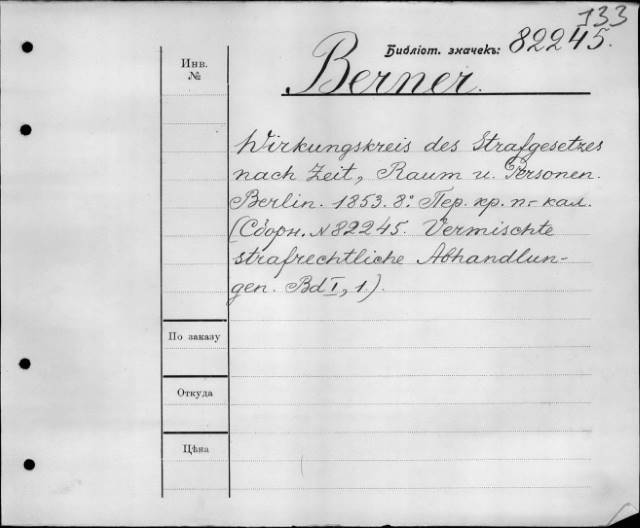 133
Библіот. значекъ: 82245.
Инв.
№
Berner.
Wirkungskreis des Strafgesetzes
nach Zeit, Raum u. Personen.
Berlin. 1853. 8º. Пер. кр. п.- кал.
(Сборн. №82245. Vermischte
strafrechtliche Abhandlun-
gen. Bd I, 1.).
По заказу
Откуда
Цѣна